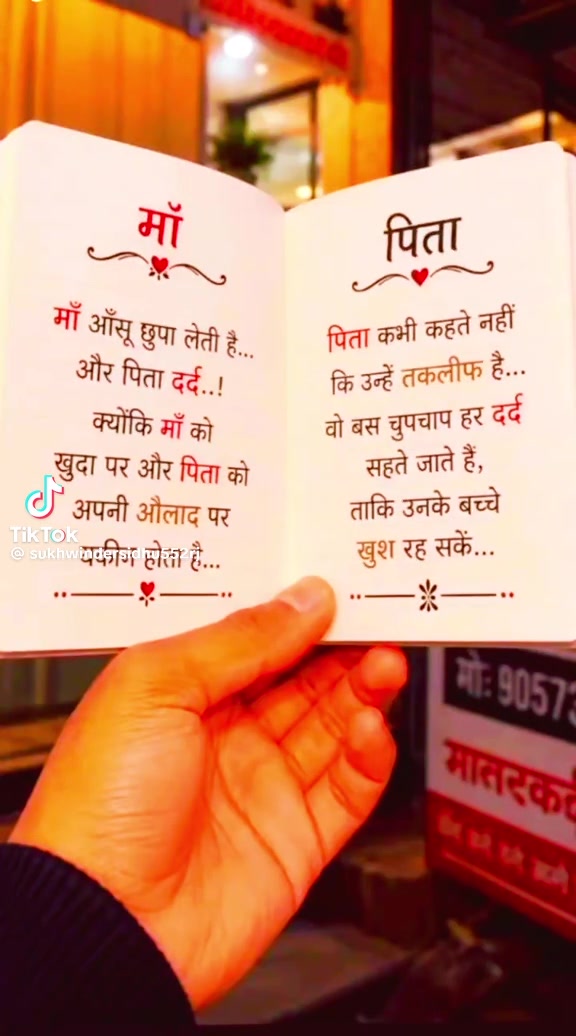 माँ
माँ आँसू छुपा लेती है...
और पिता दर्द..!
क्योंकि माँ को
खुदा पर और पिता को
अपनी औलाद पर
यकीन होता है...
पिता
पिता कभी कहते नहीं
कि उन्हें तकलीफ है...
वो बस चुपचाप हर दर्द
सहते जाते हैं,
ताकि उनके बच्चे
खुश रह सकें...
TikTok
@ sukhwindersidhu552rj
मोः 9057